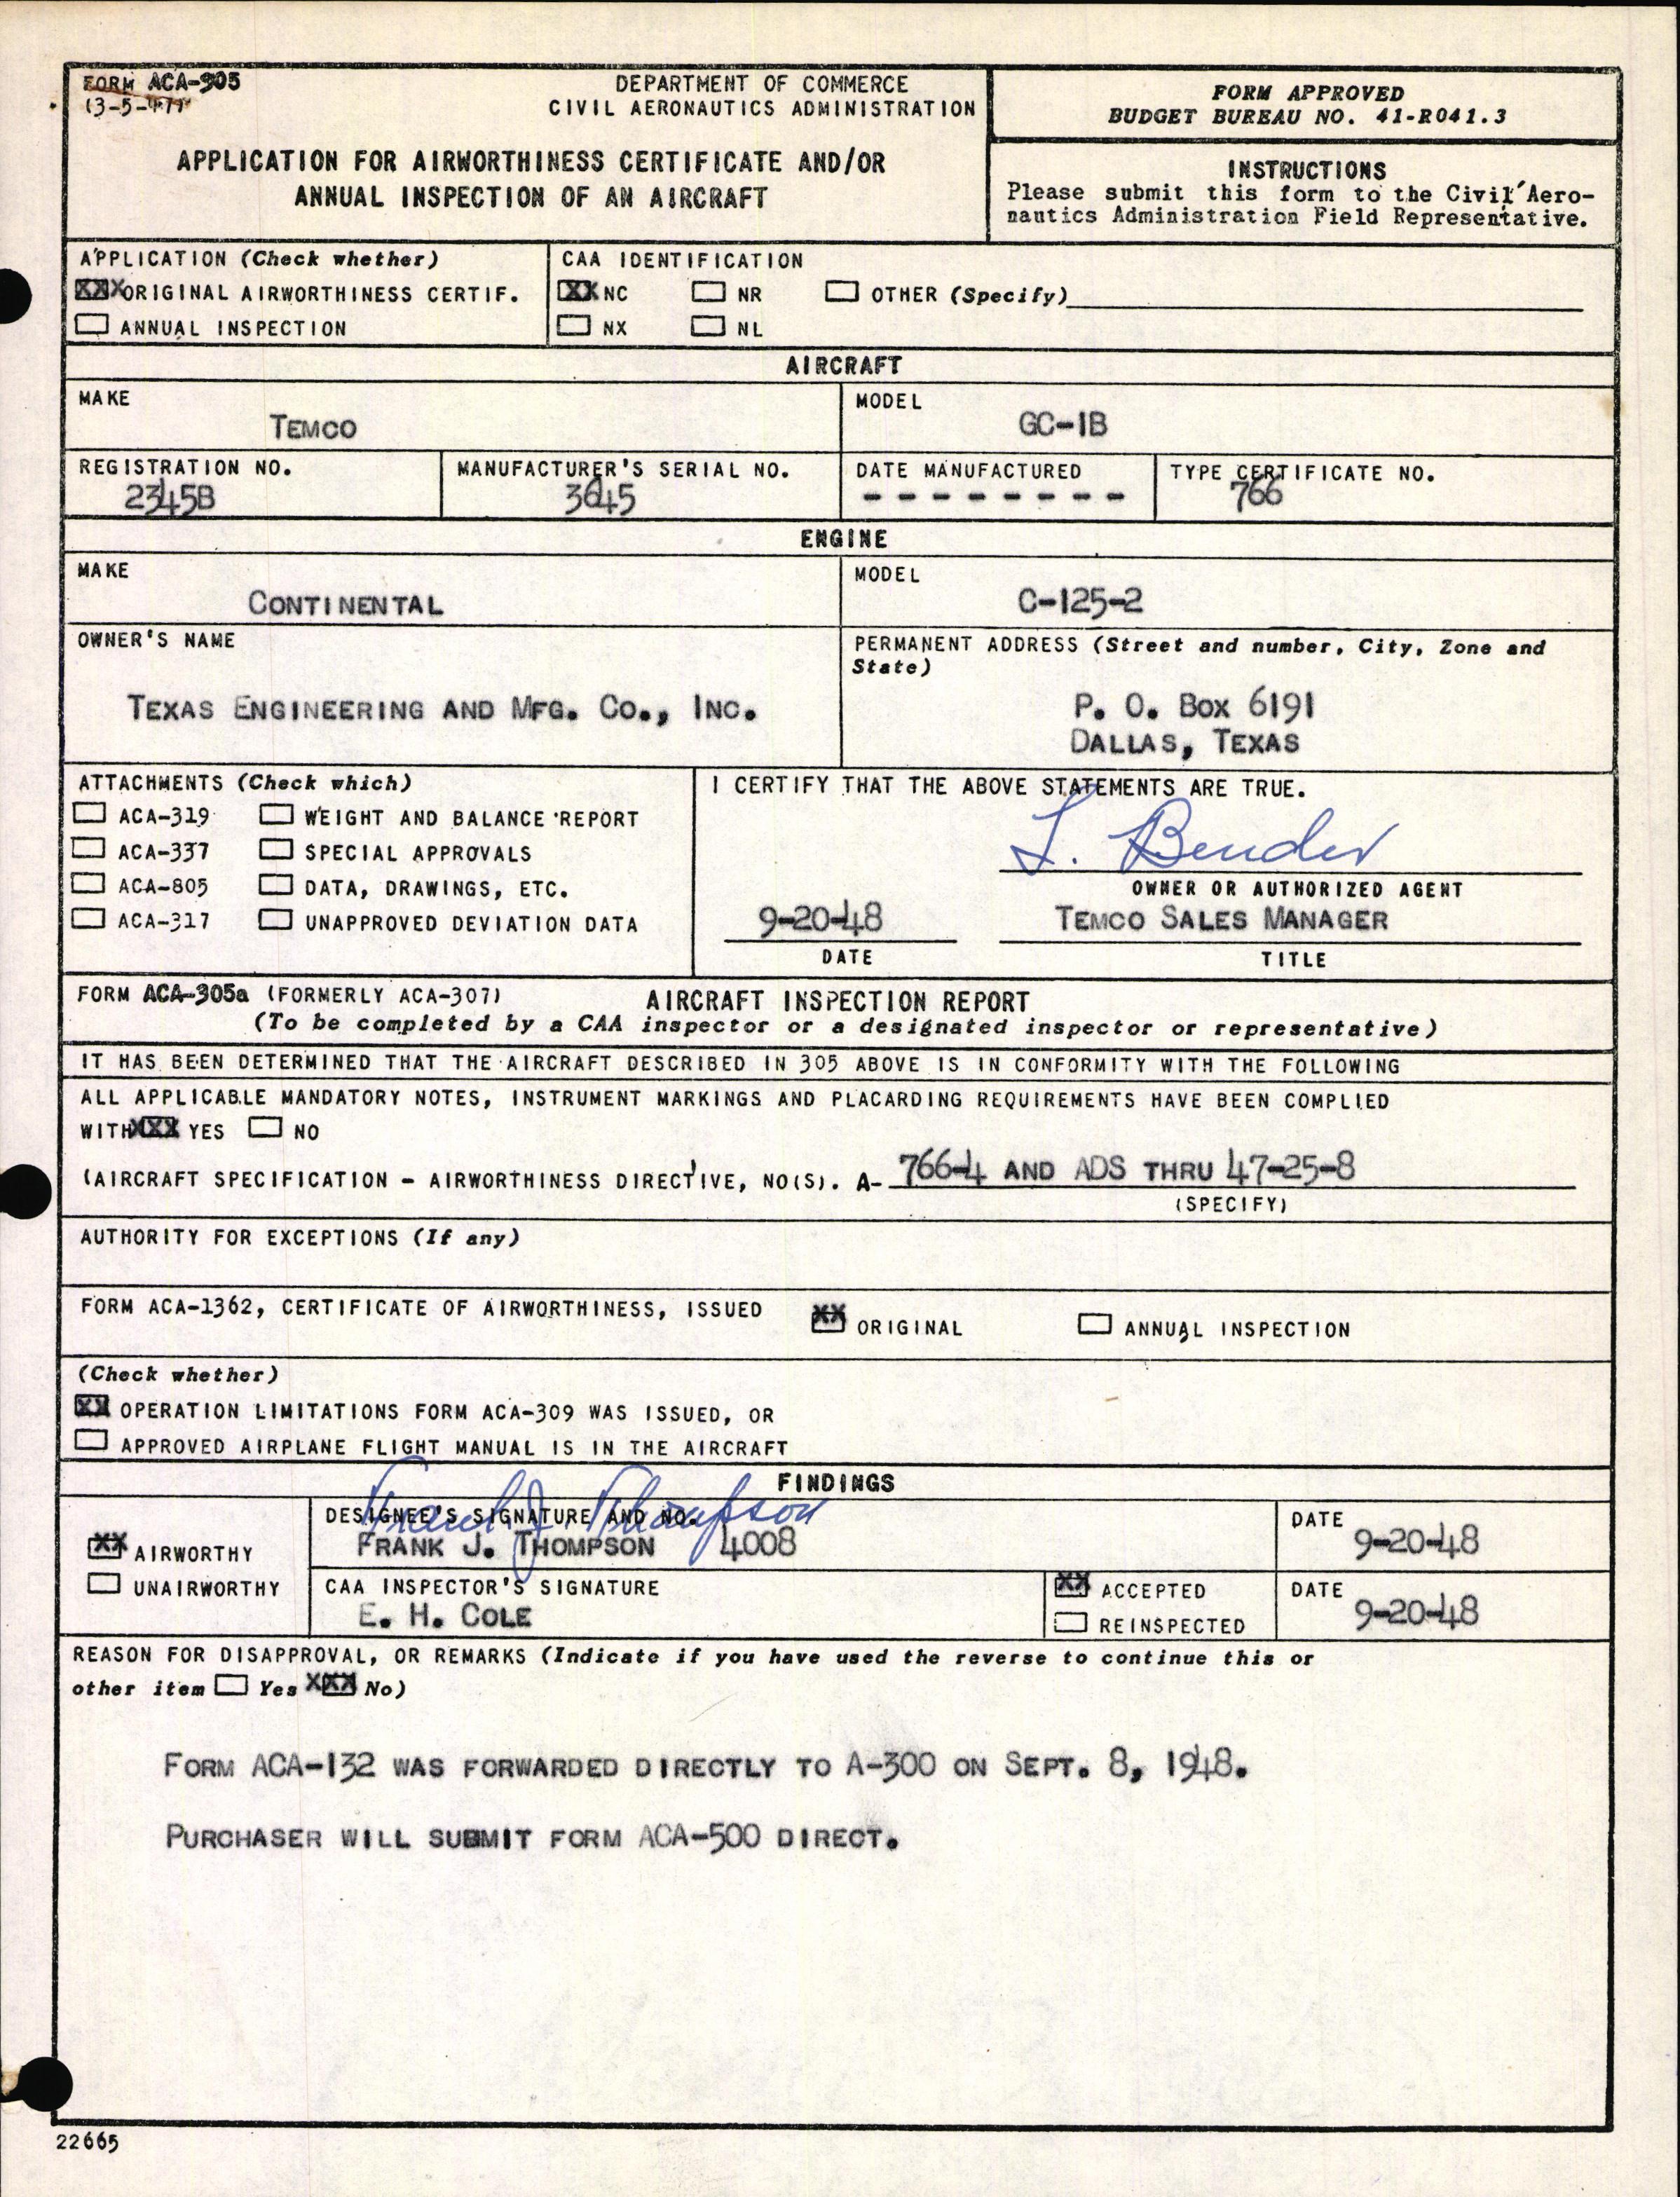 FORM ACA-305
(3-5-47)
DEPARTMENT OF COMMERCE
CIVIL AERONAUTICS ADMINISTRATION
APPLICATION FOR AIRWORTHINESS CERTIFICATE AND/OR
ANNUAL INSPECTION OF AN AIRCRAFT
FORM APPROVED
BUDGET BUREAU NO. 41-R041.3
INSTRUCTIONS
Please submit this form to the Civil Aero-
nautics Administration Field Representative.
APPLICATION (Check whether)
XXX ORIGINAL AIRWORTHINESS CERTIF.
ANNUAL INSPECTION
CAA IDENTIFICATION
XX NC NR OTHER (Specify)
NX NL
AIRCRAFT
MAKE
TEMCO
MODEL
GC-1B
REGISTRATION NO.
2345B
MANUFACTURER'S SERIAL NO.
3645
DATE MANUFACTURED
- - - - - - - -
TYPE CERTIFICATE NO.
766
ENGINE
MAKE
CONTINENTAL
MODEL
C-125-2
OWNER'S NAME
TEXAS ENGINEERING AND MFG. CO., INC.
PERMANENT ADDRESS (Street and number, City, Zone and
State)
P. O. BOX 6191
DALLAS, TEXAS
ATTACHMENTS (Check which)
ACA-319 WEIGHT AND BALANCE REPORT
ACA-337 SPECIAL APPROVALS
ACA-805 DATA, DRAWINGS, ETC.
ACA-317 UNAPPROVED DEVIATION DATA
I CERTIFY THAT THE ABOVE STATEMENTS ARE TRUE.
L. Bender
OWNER OR AUTHORIZED AGENT
9-20-48 TEMCO SALES MANAGER
DATE TITLE
FORM ACA-305a (FORMERLY ACA-307) AIRCRAFT INSPECTION REPORT
(To be completed by a CAA inspector or a designated inspector or representative)
IT HAS BEEN DETERMINED THAT THE AIRCRAFT DESCRIBED IN 305 ABOVE IS IN CONFORMITY WITH THE FOLLOWING
ALL APPLICABLE MANDATORY NOTES, INSTRUMENT MARKINGS AND PLACARDING REQUIREMENTS HAVE BEEN COMPLIED
WITH XXX YES NO
(AIRCRAFT SPECIFICATION - AIRWORTHINESS DIRECTIVE, NO(S). A- 766-4 AND ADS THRU 47-25-8
(SPECIFY)
AUTHORITY FOR EXCEPTIONS (If any)
FORM ACA-1362, CERTIFICATE OF AIRWORTHINESS, ISSUED XX ORIGINAL ANNUAL INSPECTION
(Check whether)
XX OPERATION LIMITATIONS FORM ACA-309 WAS ISSUED, OR
APPROVED AIRPLANE FLIGHT MANUAL IS IN THE AIRCRAFT
FINDINGS
XX AIRWORTHY
UNAIRWORTHY
DESIGNEE'S SIGNATURE AND NO.
Frank J. Thompson
FRANK J. THOMPSON 4008
DATE
9-20-48
CAA INSPECTOR'S SIGNATURE
E. H. COLE
XX ACCEPTED
REINSPECTED
DATE
9-20-48
REASON FOR DISAPPROVAL, OR REMARKS (Indicate if you have used the reverse to continue this or
other item Yes XXX No)
FORM ACA-132 WAS FORWARDED DIRECTLY TO A-300 ON SEPT. 8, 1948.
PURCHASER WILL SUBMIT FORM ACA-500 DIRECT.
22665